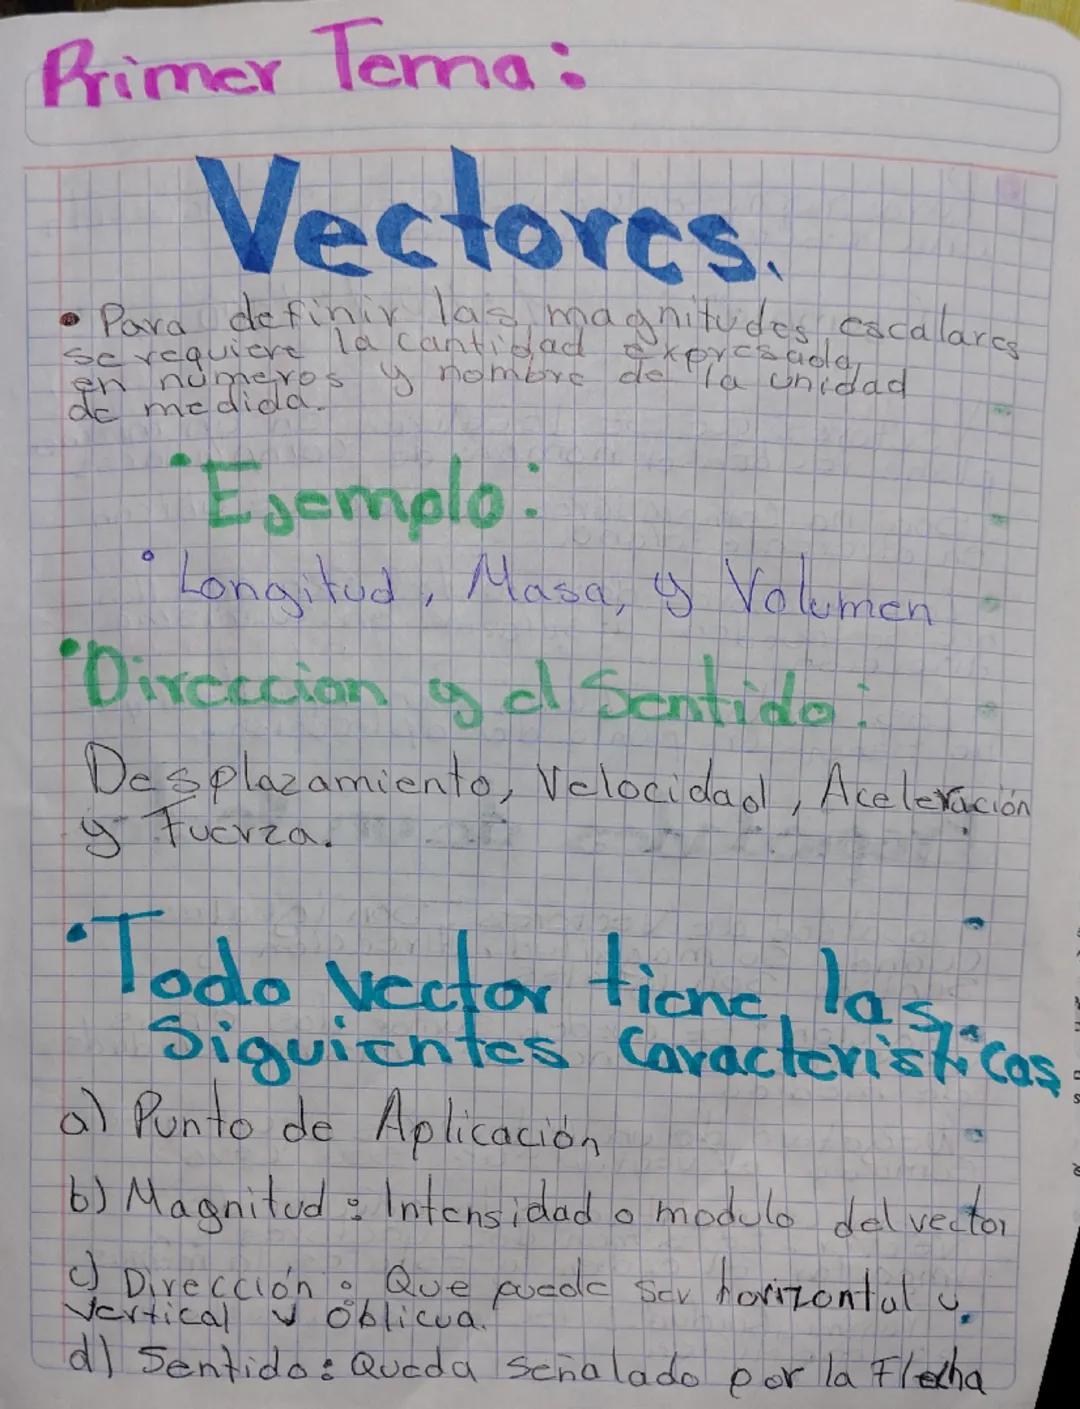 Primer Tema:
Vectores.
• Para definir las magnitudes escalares
se requiere la cantidad expresada,
en números y nombre de la unidad
de medida.
• Ejemplo:
• Longitud, Masa, y Volumen
• Direccion y el Sentido:
Desplazamiento, Velocidad, Aceleración
y Fuerza.
• Todo vector tiene las
Siguientes Caracteristicas
a) Punto de Aplicación
b) Magnitud: Intensidad o modulo del vector
c) Dirección: Que puede ser horizontal y
vertical y oblicua.
d) Sentido: Queda señalado por la Flecha